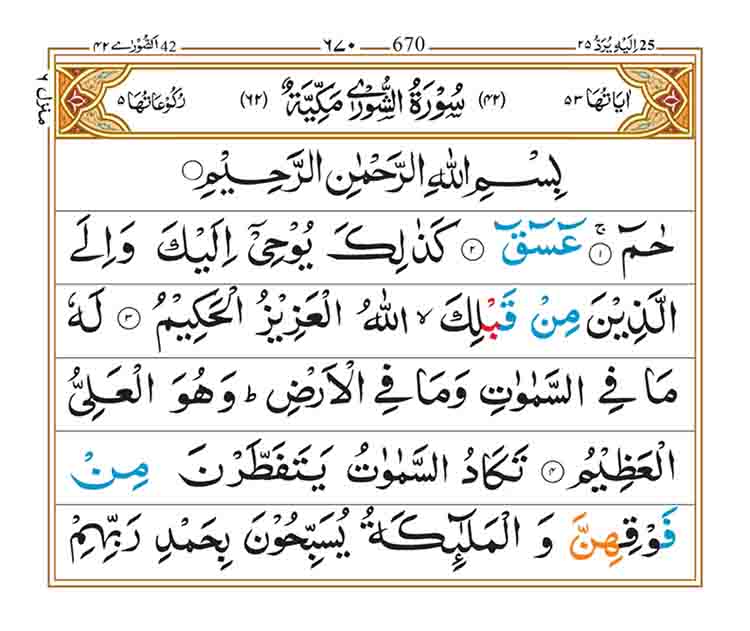 25 اِلَيْهِ يُرَدُّ ٢٥ 670 ٦٧٠ 42 اَلشُّوْرٰى ٤٢
منزل ٦
اٰيَاتُهَا ٥٣ (٤٢) سُوْرَةُ الشُّوْرٰى مَكِّيَّةٌ (٦٢) رُكُوْعَاتُهَا ٥
بِسْمِ اللّٰهِ الرَّحْمٰنِ الرَّحِيْمِ
حٰمٓ ۚ ١ عٓسٓقٓ ٢ كَذٰلِكَ يُوْحِيْٓ اِلَيْكَ وَاِلَى
الَّذِيْنَ مِنْ قَبْلِكَ ۙ اللّٰهُ الْعَزِيْزُ الْحَكِيْمُ ٣ لَهٗ
مَا فِي السَّمٰوٰتِ وَمَا فِي الْاَرْضِ ؕ وَهُوَ الْعَلِيُّ
الْعَظِيْمُ ٤ تَكَادُ السَّمٰوٰتُ يَتَفَطَّرْنَ مِنْ
فَوْقِهِنَّ وَ الْمَلٰٓئِكَةُ يُسَبِّحُوْنَ بِحَمْدِ رَبِّهِمْ